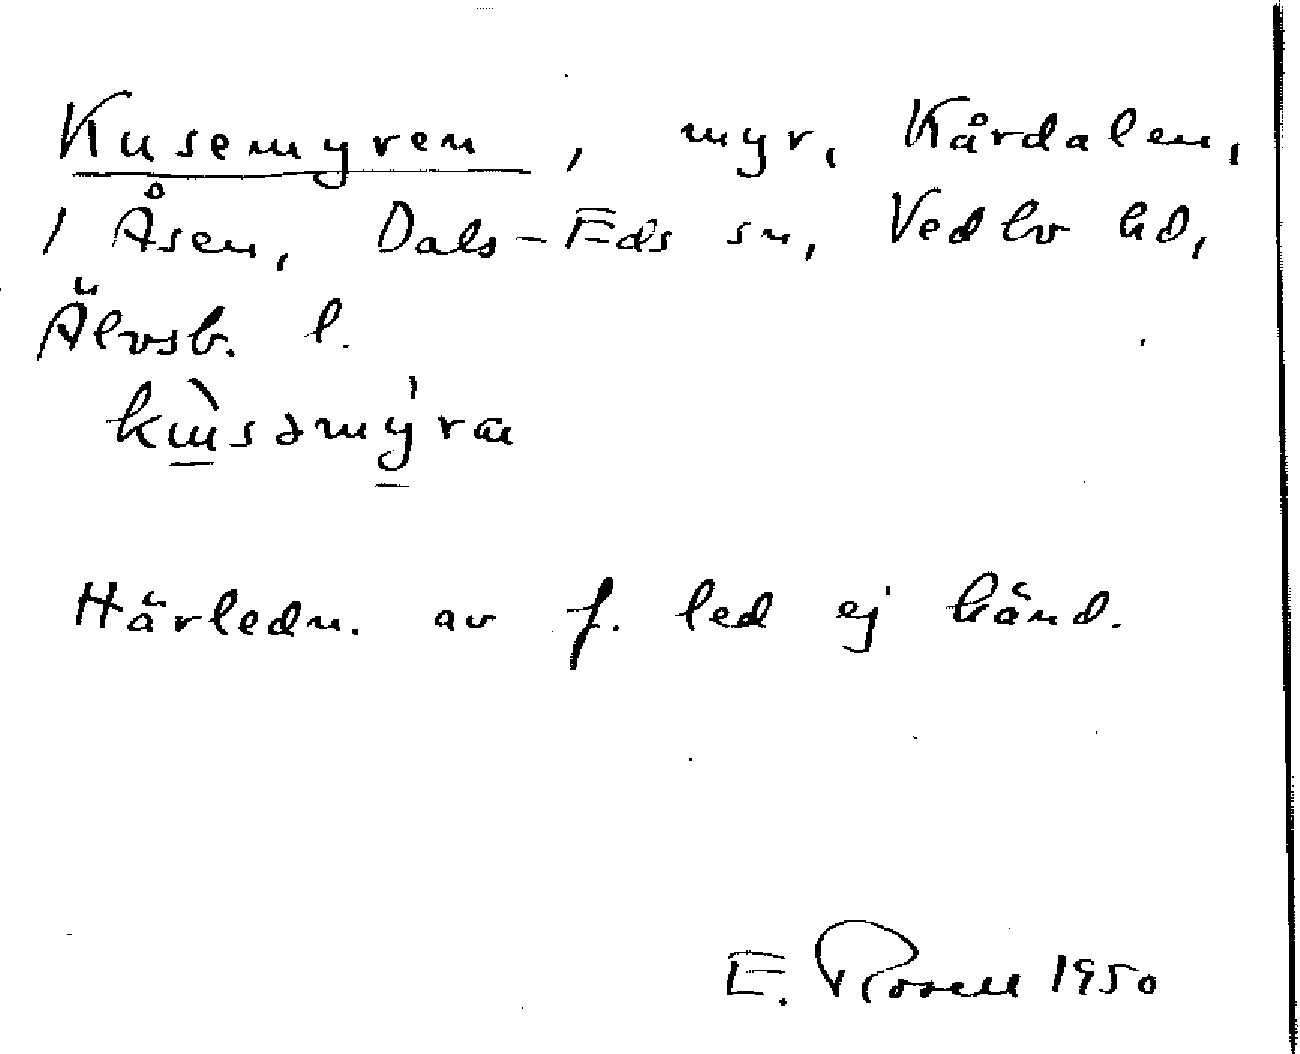 Kusemyren, myr, Kårdalen,
1 Åsen, Dals-Eds sn, Vedbo hd,
Älvsb. l.
kɯ̀səmy̍ra
Härledn. av f. led ej känd.
E. Rosell 1950